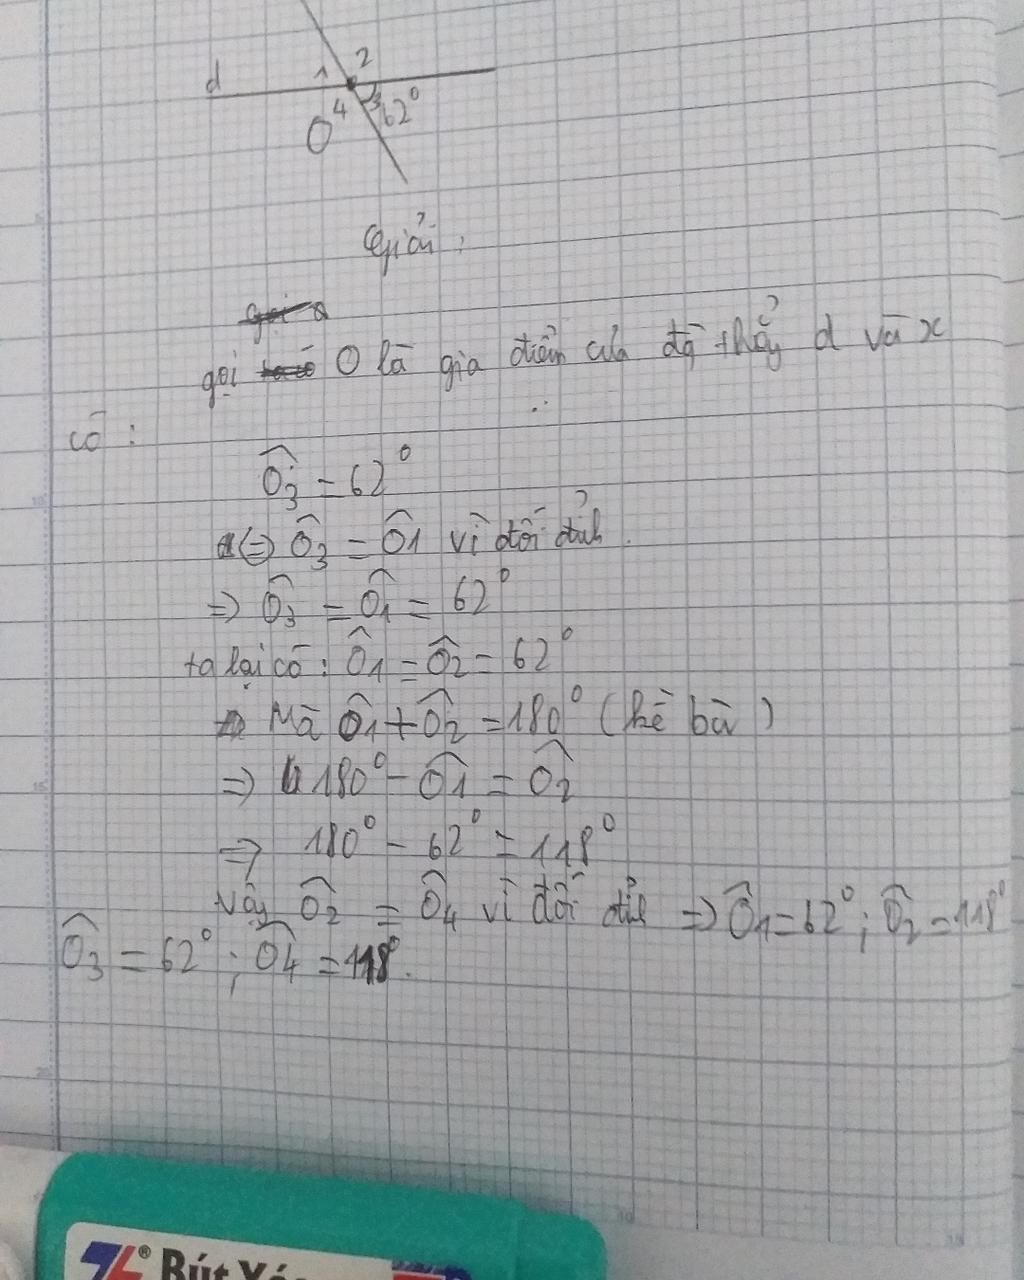 d 1 2
O 4 3 62°
Giải:
gọi O là gia điểm của đg thẳng d và x
có:
Ô3 = 62°
(=) Ô3 = Ô1 vì đối đỉnh.
=> Ô3 = Ô1 = 62°
ta lại có: Ô1 = Ô2 = 62°
Mà Ô1 + Ô2 = 180° (kề bù)
=> 180° - Ô1 = Ô2
=> 180° - 62° = 118°
Vậy Ô2 = Ô4 vì đối đỉnh => Ô1 = 62°; Ô2 = 118°
Ô3 = 62°; Ô4 = 118°.
® Bút Xó